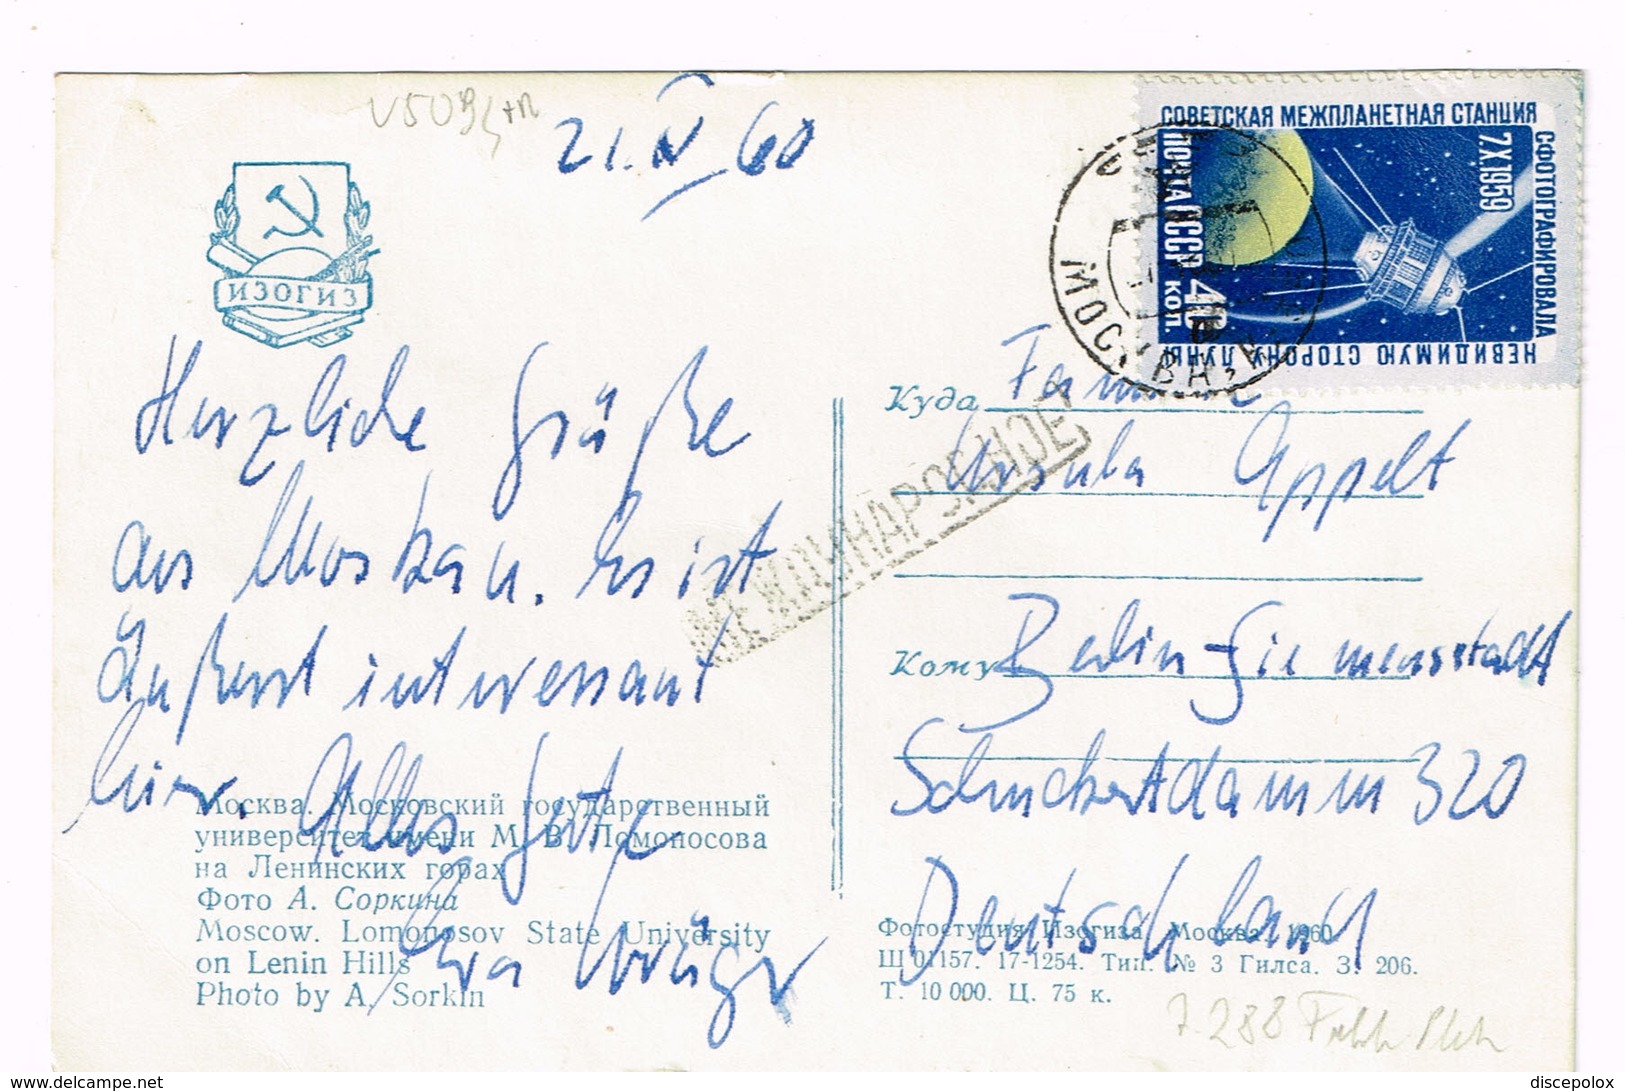 21. IV 60
ИЗОГИЗ
СОВЕТСКАЯ МЕЖПЛАНЕТНАЯ СТАНЦИЯ
СФОТОГРАФИРОВАЛА
НЕВИДИМУЮ СТОРОНУ ЛУНЫ
7.X.1959
ПОЧТА СССР 40 коп.
МОСКВА
МЕЖДУНАРОДНОЕ
Herzliche Grüße
aus Moskau. Es ist
äußerst interessant
hier. Alles Gute
Куда
Ursula Appelt
Кому Berlin-Siemensstadt
Schuckertdamm 320
Deutschland
Москва. Московский государственный
университет имени М. В. Ломоносова
на Ленинских горах
Фото А. Соркина
Moscow. Lomonosov State University
on Lenin Hills
Photo by A. Sorkin
Фотостудия Изогиза Москва 1960
Ш 01157. 17-1254. Тип. № 3 Гилса. З. 206.
Т. 10 000. Ц. 75 к.
http://www.delcampe.net
discepolox